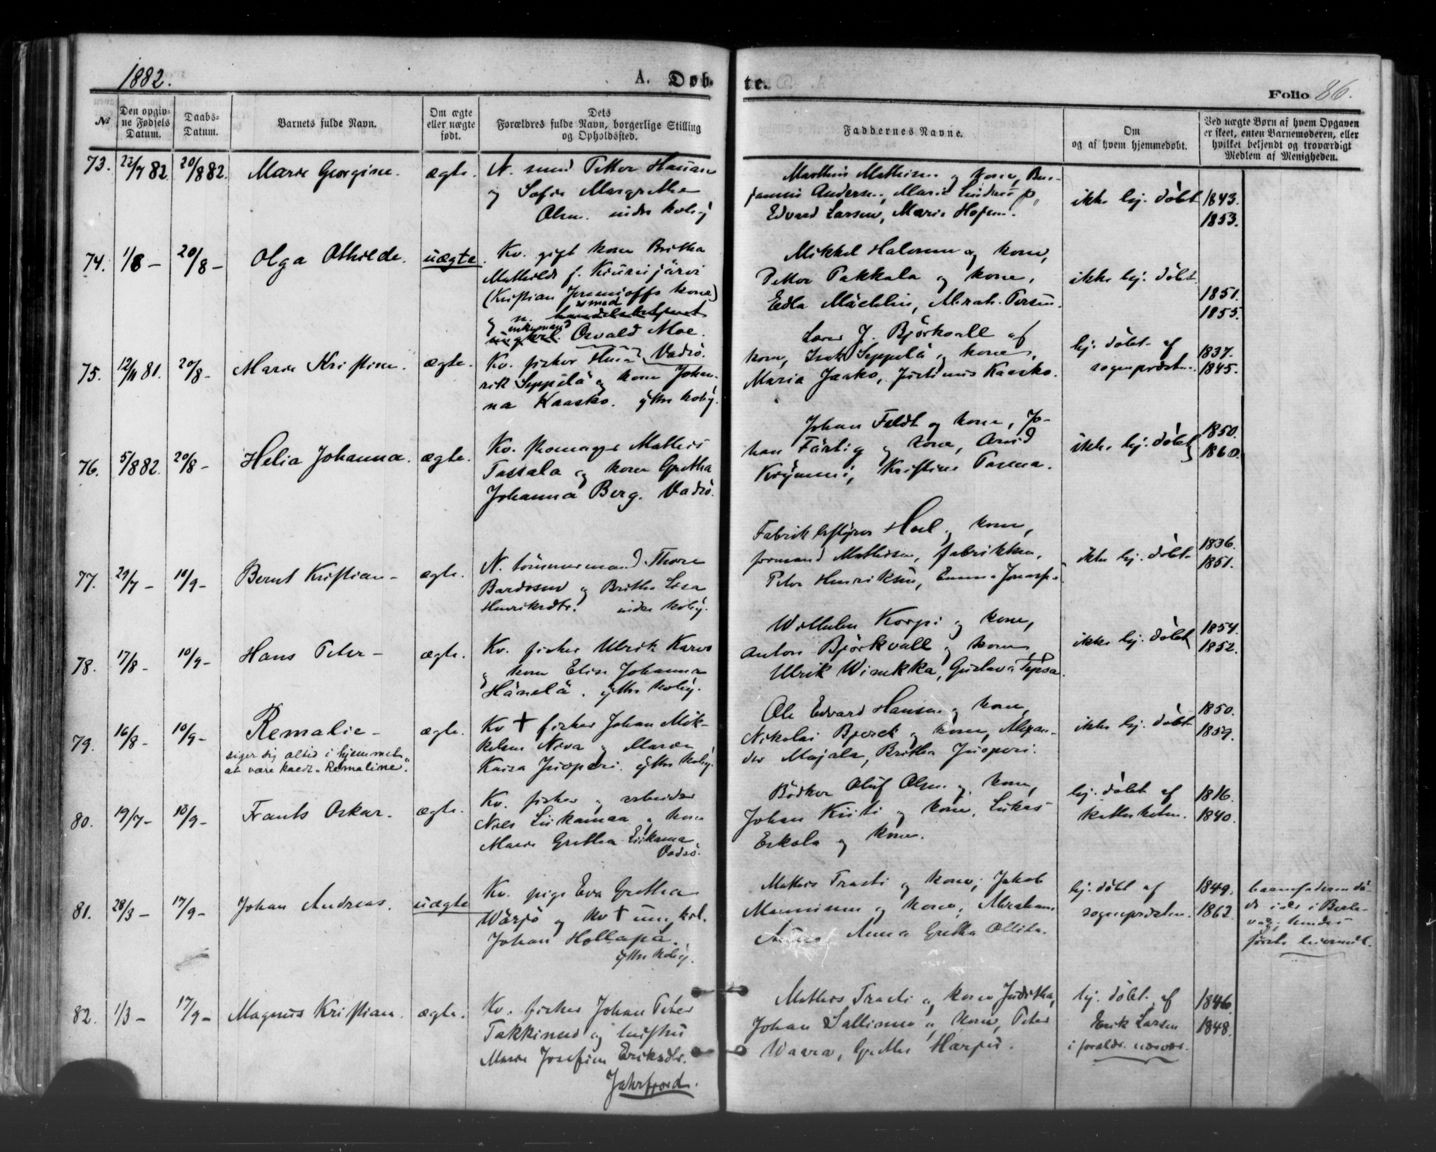 1882.
A. Døb-
te.
Folio 86.
№
Den opgiv-
ne Fødsels
Datum.
Daabs-
Datum.
Barnets fulde Navn.
Om ægte
eller uægte
født.
Dets
Forældres fulde Navn, borgerlige Stilling
og Opholdssted.
Faddernes Navne.
Om
og af hvem hjemmedøbt.
Ved uægte Børn af hvem Opgaven
er skeet, enten Barnemoderen, eller
hvilket beljendt og troværdigt
Medlem af Menigheden.
73. 22/7 82 20/8 82. Marie Georgine. ægte.
og Sofie Margrethe
Olsen. indre Kvby
Marthin Mathisen og kone, Ben-
jamin Andersen, Marie Lindrup,
Edvard Larsen, Marie
ikke hj. døbt 1843.
1853.
74. 1/8 – 20/8 – Olga Othilde. uægte.
Kv. gift kone Britha
Mathilde f.
(Kristian kone)
Osvald Moe.
Vadsö.
Mikkel Halonen og kone,
Petter Pakkala og kone,
Edla
ikke hj. døbt
1851.
1855.
75. 12/11 81. 20/8 – Marie Kristine. ægte.
Kv. fisker Hen-
rik Seppälä og kone Johan-
na Kaasko. ytre Kvby.
J. Björkvall og
kone, Isak Seppälä og kone,
Maria Jaako, Justinus Kaasko.
hj. døbt af
sogneprästen.
1837.
1845.
76. 5/8 82. 20/8 – Helia Johanna. ægte.
Kv. skomager Mathis
Tassala og kone Gretha
Johanna Berg. Vadsö.
Johan Feldt og kone, Jo-
han Färtig og kone, Arvid
Kristine
ikke hj. døbt
1850.
1860.
77. 29/7 – 10/9 – Bernt Kristian – ægte.
N. tömmermand Thore
Bardosen og Britha Lisa
Henriksdtr. indre Kvby.
Fabrikbestyrer Hoel og kone,
formand Mathisen, fabrikken,
Peter Henriksen, Emma
ikke hj. døbt
1836.
1851.
78. 17/8 – 10/9 – Hans Peter – ægte.
Kv. fisker Ulrik Karvo
og kone Elise Johanna
Hänelä. ytre Kvby.
Wilhelm Korpi og kone,
Anton Björkvall og kone
Ulrik Winikka, Gustava
ikke hj. døbt
1854.
1852.
79. 16/8 – 10/9 – Remalie – ægte.
siger sig altid i hjemmet
at være kaldt „Remaline“.
Kv † fisker Johan Mik-
kelsen Neva og Maren
Kaisa Juopari. ytre Kvby.
Ole Edvard Hansen og kone,
Nikolai Bjerck og kone, Alexan-
der Majala, Britha Juopari.
ikke hj. døbt
1850.
1859.
80. 19/7 – 10/9 – Frants Oskar. ægte.
Kv. fisker og arbeider
Nils Liikamaa og kone
Marie Gretha
Vadsö.
Bödker Oluf Olsen og kone,
Johan Kiisti og kone, Lukas
Erkola og kone.
hj. døbt af
kateketen.
1816.
1840.
81. 28/3 – 17/9 – Johan Andreas. uægte
Kv. pige Eva Gretha
og Kv † ung.
Johan Hollapa.
ytre Kvby.
Mathis Traeti og kone, Jakob
Manninen og kone, Abraham
Anna Gretha Ollila.
hj. døbt af
sogneprästen.
1849.
1862.
barnefaderen dö-
de i
hendes
første leiermaal.
82. 1/3 – 17/9 – Magnus Kristian. ægte.
Kv. fisker Johan Peter
Takkinen og hustru
Marie Josefine Eriksdtr.
Jahrfjord.
Mathis Traeti og kone Juditha,
Johan Sallinen og kone, Peter
Waara, Gretha Harju.
hj. døbt af
Erik Larsen
i forældr. nærvær.
1846.
1848.